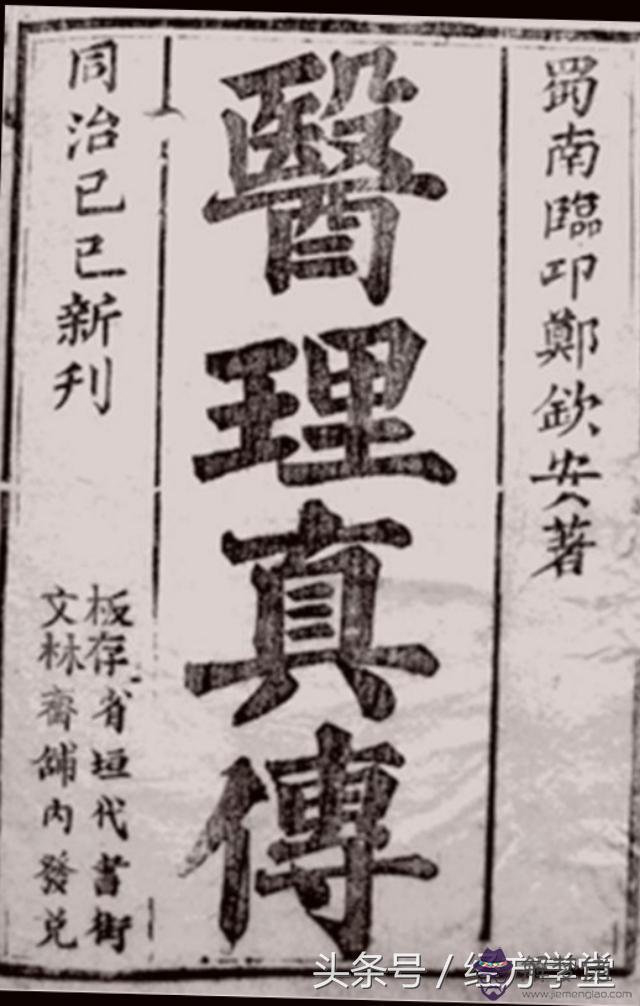 蜀南臨邛鄭欽安著
醫理真傳
同治己巳新刊
板存省垣代書街
文林齋舖內發兌
头条号／经方学堂
www.jiemenglao.com